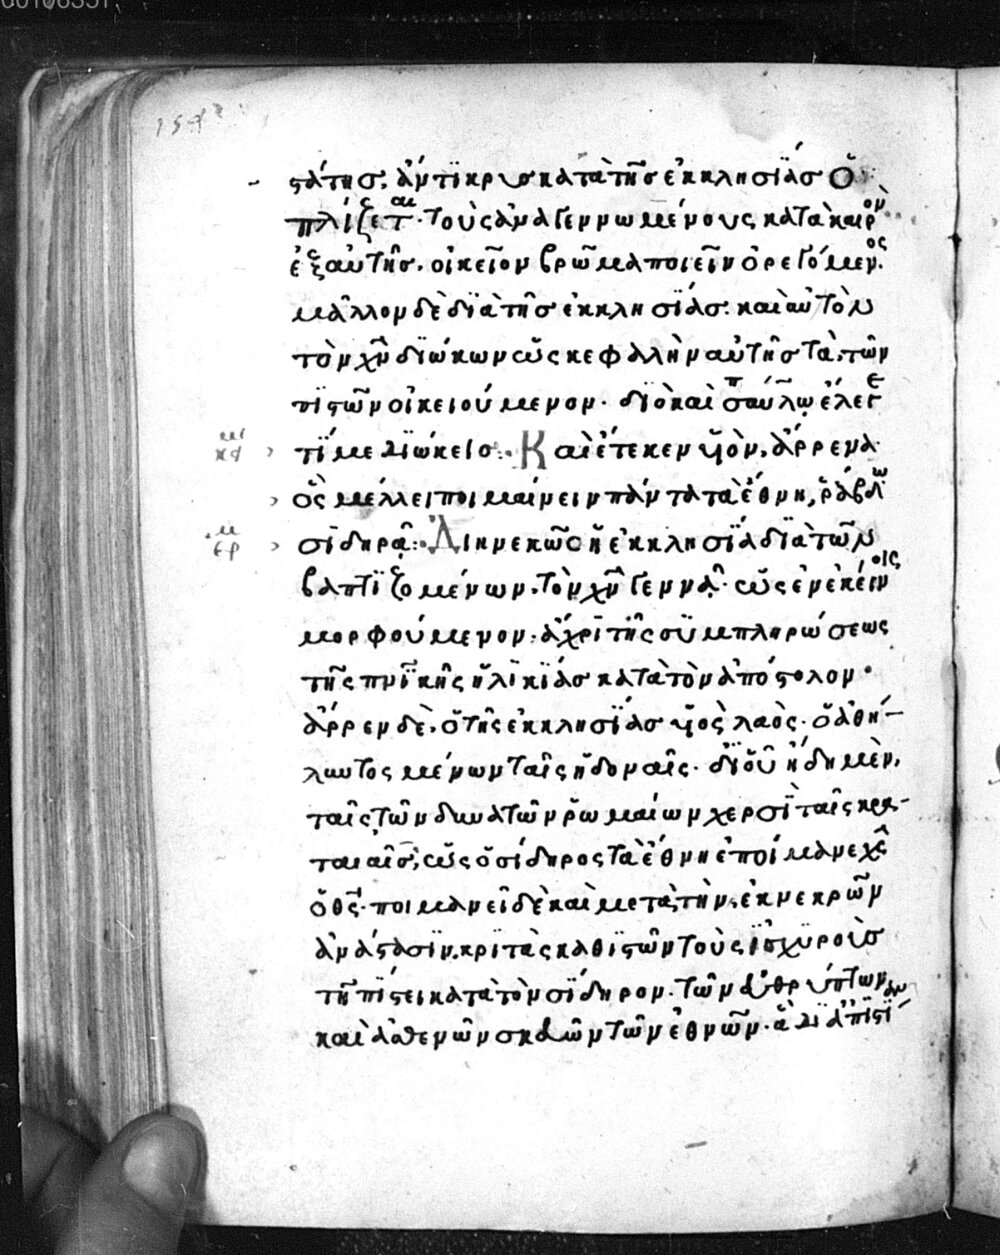 στάτης, ἀντικρυς κατὰ τῆς ἐκκλησίας ὁ
πλίζεται· τοὺς ἀναγεννωμένους κατὰ καιρὸν
ἐξ αὐτῆς· οἰκεῖον βρῶμα ποιεῖν ὀρεγόμενος·
μᾶλλον δὲ διὰ τῆς ἐκκλησίας· καὶ αὐτὸν
τὸν χν διώκων ὡς κεφαλὴν αὐτῆς τὰ τῶν
πιστῶν οἰκειούμενον· διὸ καὶ σπαύλω ἔλεγε
τί με διώκεις· Καὶ ἔτεκεν υἱὸν, ἄρρενα
ὃς μέλλει ποιμαίνειν πάντα τὰ ἔθνη, ῥάβδω
σιδηρᾶ· Διηνεκῶς ἡ ἐκκλησία διὰ τῶν
βαπτιζομένων· τὸν χν γεννᾶ· ὡς ἐν ἐκείνοις
μορφούμενον· ἄχρι τῆς συμπληρώσεως
τῆς πνικῆς ἡλικίας κατὰ τὸν ἀπόστολον·
ἄρρεν δὲ, ὁ τῆς ἐκκλησίας υἱὸς λαὸς· ὁ ἀθή
λυντος μένων ταῖς ἡδοναῖς· δι' οὗ ἤδη μὲν,
ταῖς τῶν δυνατῶν ῥωμαίων χερσὶ ταῖς κρα
ταιαῖς, ὡς ὁ σίδηρος τὰ ἔθνη ἐποίμανε χς
ὁ θς· ποιμανεῖ δὲ καὶ μετὰ τὴν ἐκ νεκρῶν
ἀνάστασιν, κριτὰς καθιστῶν τοὺς ἰσχυροὺς
τῇ πίστει κατὰ τὸν σίδηρον· τῶν εὐθρύπτων
καὶ ἀσθενῶν σκευῶν τῶν ἐθνῶν·